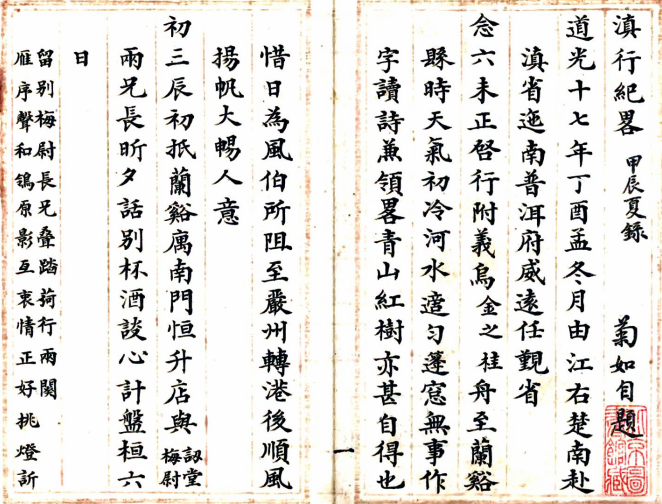 滇行紀畧 甲辰夏録 菊如自題
道光十七年丁酉孟冬月由江右楚南赴
滇省迤南普洱府威遠任覲省
念六未正啓行附義烏金之桂舟至蘭谿
縣時天氣初冷河水適勻蓬窓無事作
字讀詩兼領畧青山紅樹亦甚自得也
一
惜日為風伯所阻至嚴州轉港後順風
揚帆大暢人意
初三辰初抵蘭谿寓南門恒升店與訒堂梅尉
兩兄長昕夕話別杯酒談心計盤桓六
日
留別梅尉長兄叠踏莎行兩闋
雁序聲和鴒原影互衷情正好挑燈訴